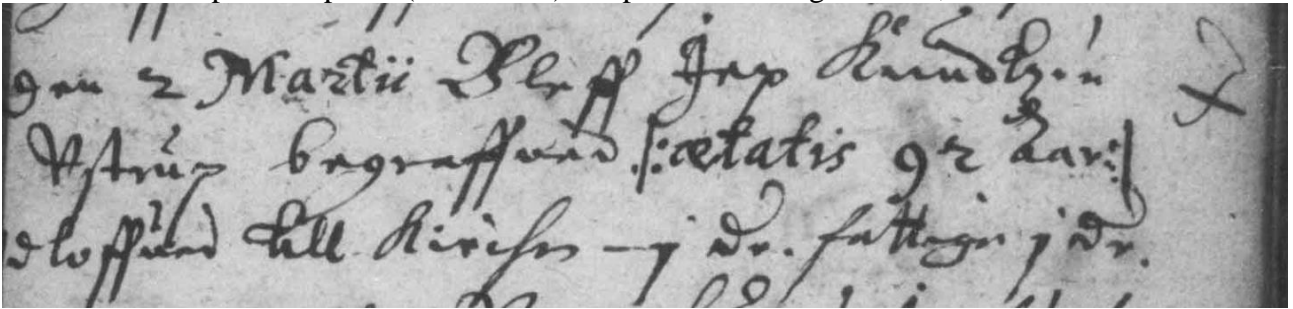 den 2 Martii Bleff Jep Knudtzen
Vstrup begraffved |: ætatis 92 Aar :|
dloffved till Kirchen – j dr. fattige j dr.